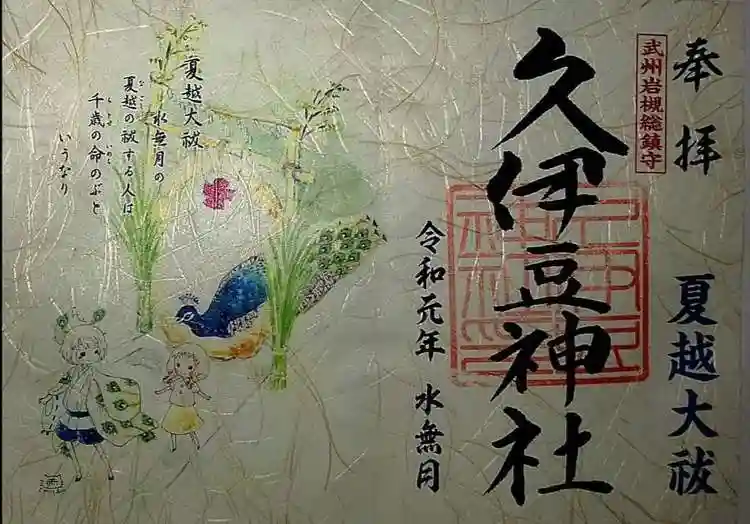 奉拝
武州岩槻総鎮守
夏越大祓
久伊豆神社
令和元年 水無月
夏越大祓
水無月の
夏越の祓する人は
千歳の命のぶと
いうなり